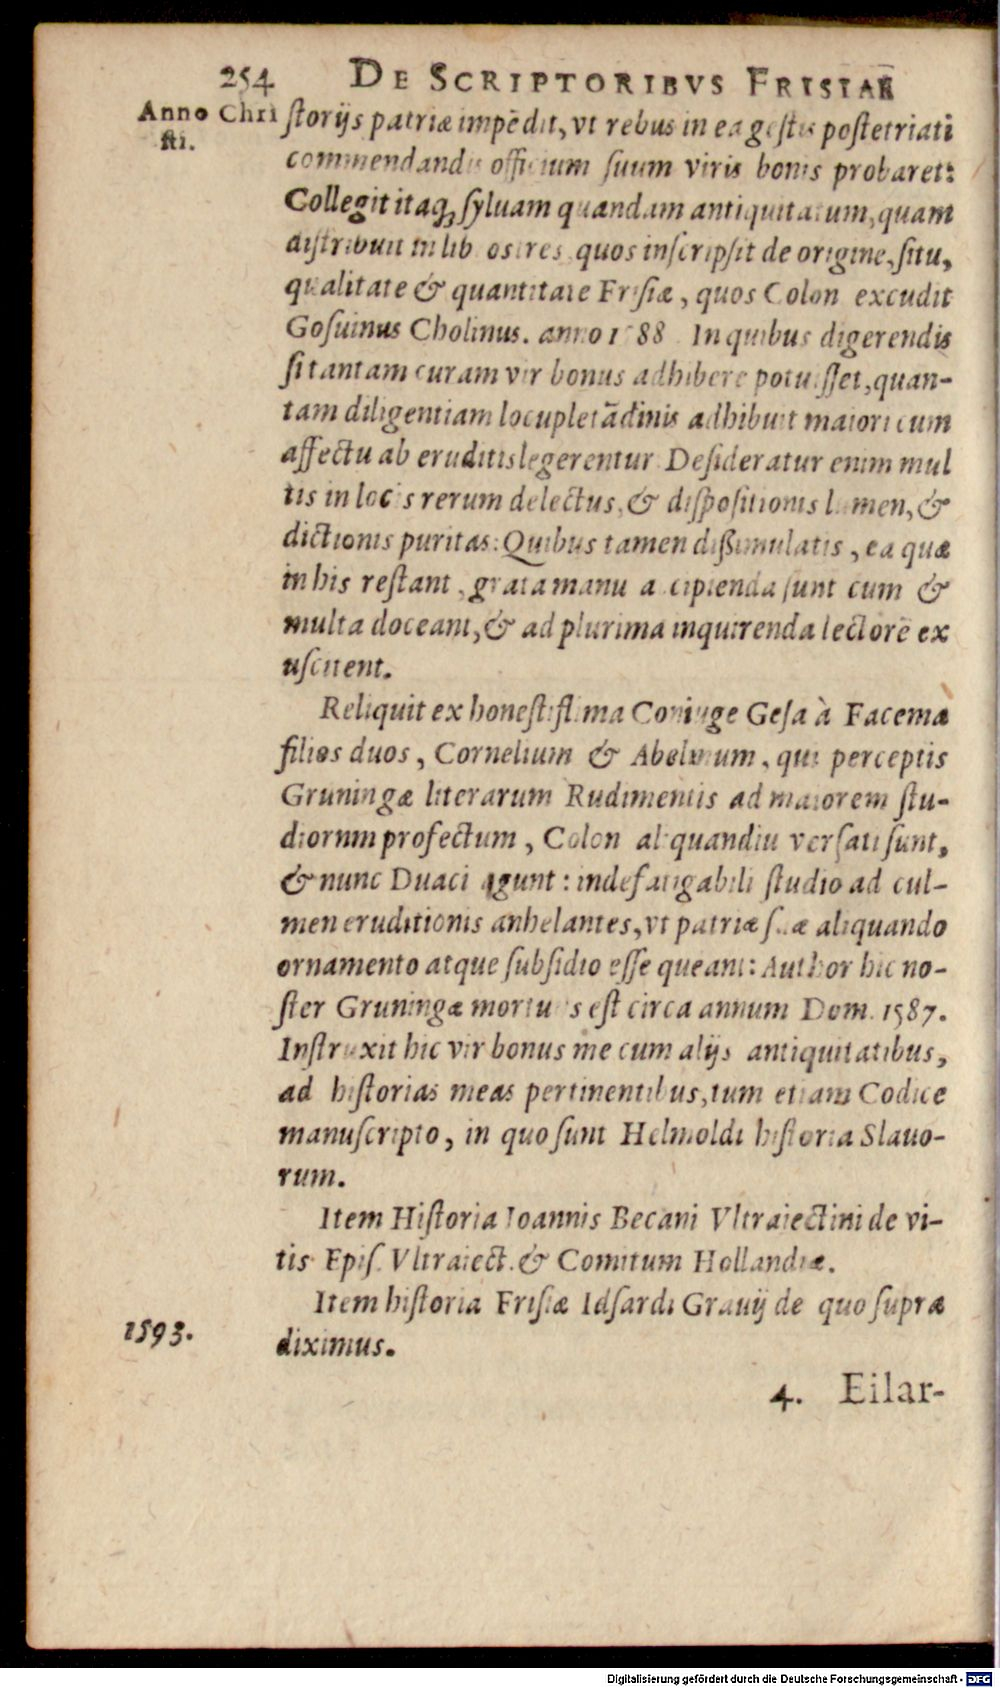 254 DE SCRIPTORIBVS FRISIAE
Anno Chri
sti.
storijs patriæ impēdit, vt rebus in ea gestis postetriati
commendandis officium suum viris bonis probaret:
Collegit itaq; syluam quandam antiquitatum, quam
distribuit in lib os tres quos inscripsit de origine, situ,
qualitate & quantitate Frisiæ, quos Colon excudit
Gosuinus Cholinus. anno 1588 In quibus digerendis
si tantam curam vir bonus adhibere potuisset, quan-
tam diligentiam locupletādinis adhibuit maiori cum
affectu ab eruditis legerentur Desideratur enim mul
tis in locis rerum delectus, & dispositionis lumen, &
dictionis puritas: Quibus tamen dißimulatis, ea quæ
in his restant, grata manu accipienda sunt cum &
multa doceant, & ad plurima inquirenda lectorē ex
uscitent.
Reliquit ex honestissima Coniuge Gesa à Facema
filios duos, Cornelium & Abelmum, qui perceptis
Gruningæ literarum Rudimentis ad maiorem stu-
diornm profectum, Colon aliquandiu versati sunt,
& nunc Duaci agunt: indefatigabili studio ad cul-
men eruditionis anhelantes, vt patriæ suæ aliquando
ornamento atque subsidio esse queant: Author hic no-
ster Gruningæ mortuus est circa annum Dom. 1587.
Instruxit hic vir bonus me cum alijs antiquitatibus,
ad historias meas pertinentibus, tum etiam Codice
manuscripto, in quo sunt Helmoldi historia Slauo-
rum.
Item Historia Ioannis Becani Vltraiectini de vi-
tis Epis. Vltraiect. & Comitum Hollandiæ.
Item historia Frisiæ Idsardi Grauij de quo supræ
1593.
diximus.
4. Eilar-
Digitalisierung gefördert durch die Deutsche Forschungsgemeinschaft - DFG